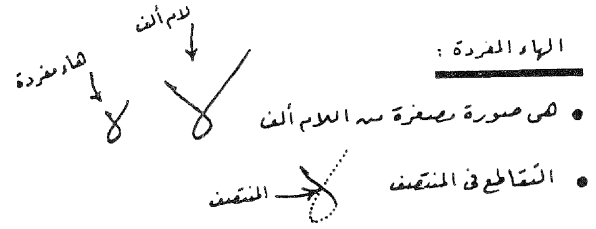 لام ألف
هاء مفردة
الهاء المفردة :
• هى صورة مصغرة من اللام ألف
• التقاطع فى المنتصف
المنتصف